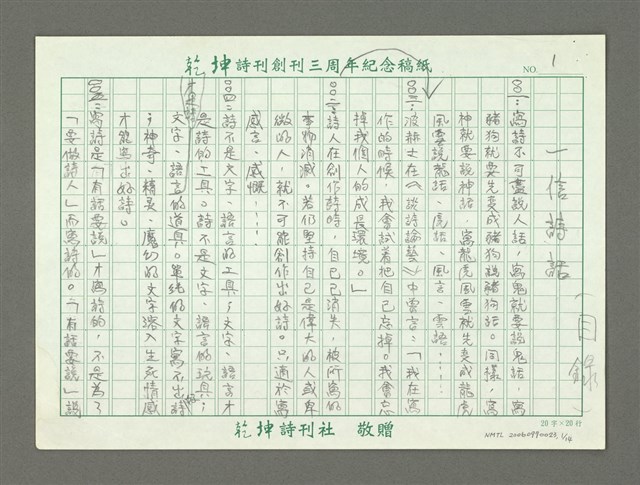 乾坤詩刊創刊三周年紀念稿紙
NO. 1
一信詩話（目錄）
001：寫詩不可盡說人話，寫鬼就要說鬼話，寫
豬狗就要先變成豬狗說豬狗話。同樣，寫
神就要說神話，寫龍虎風雲就先變成龍虎
風雲說龍話、虎話、風言、雲語……
002：波赫士在《談詩論藝》中曾言：「我在寫
作的時候，我會試着把自己忘掉。我會忘
掉我個人的成長環境。」
003：詩人在創作詩時，自己已消失，被所寫的
事物消滅。若仍堅持自己是偉大的人或卑
微的人，就不可能創作出好詩。只適於寫
感言、感慨……
004：詩不是文字、語言的工具；文字、語言才
是詩的工具。詩不是文字、語言的玩具；
文字、語言才是詩的道具。單純的文字寫不出詩
；神奇、精灵、魔幻的文字溶入生死情感
才能寫出好詩。
005：寫詩是「有話要說」才寫詩的，不是為了
「要做詩人」而寫詩的。「有話要說」說
20字×20行
乾坤詩刊社 敬贈
NMTL 20060990023, 1/14